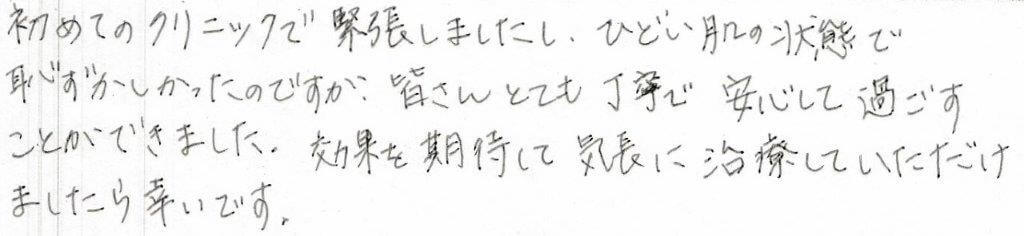 初めてのクリニックで緊張しましたし、ひどい肌の状態で
恥ずかしかったのですが、皆さんとても丁寧で安心して過ごす
ことができました。効果を期待して気長に治療していただけ
ましたら幸いです。